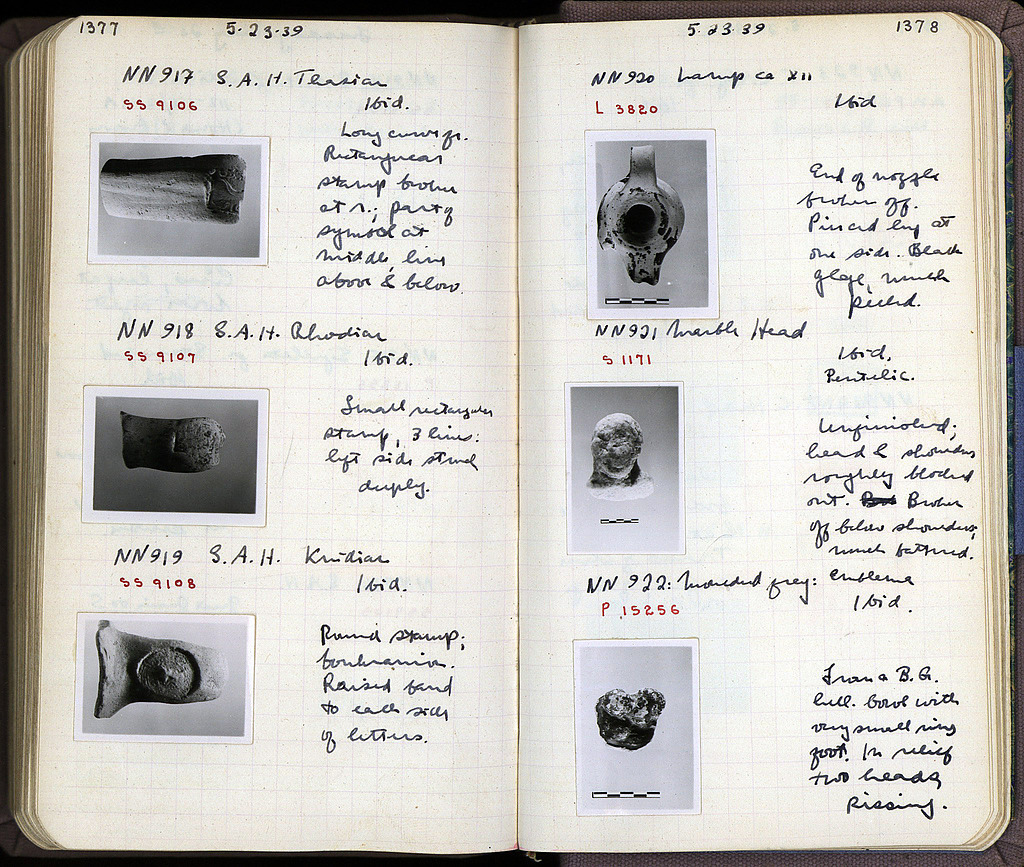 1377
5-23-39
NN917 S.A.H. Thasian
SS 9106
Ibid.
Long curving.
Rectangular
stamp broken
at r.; part of
symbol at
middle line
above & below.
NN 918 S.A.H. Rhodian
SS 9107
Ibid.
Small rectangular
stamp, 3 lines:
left side struck
deeply.
NN919 S.A.H. Knidian
SS 9108
Ibid.
Round stamp;
boukranion.
Raised band
to each side
of letters.
5-23-39
1378
NN920 Lamp ca XII
L 3820
Ibid
End of nozzle
broken off.
Pierced lug at
one side. Black
glaze, much
peeled.
NN921 Marble Head
S 1171
Ibid.
Pentelic.
Unfinished;
head & shoulders
roughly blocked
out. Broken
off below shoulders;
much battered.
NN 922: Moulded frag: emblema
P 15256
Ibid.
From a B.G.
hell. bowl with
very small ring
foot. In relief
two heads,
kissing.